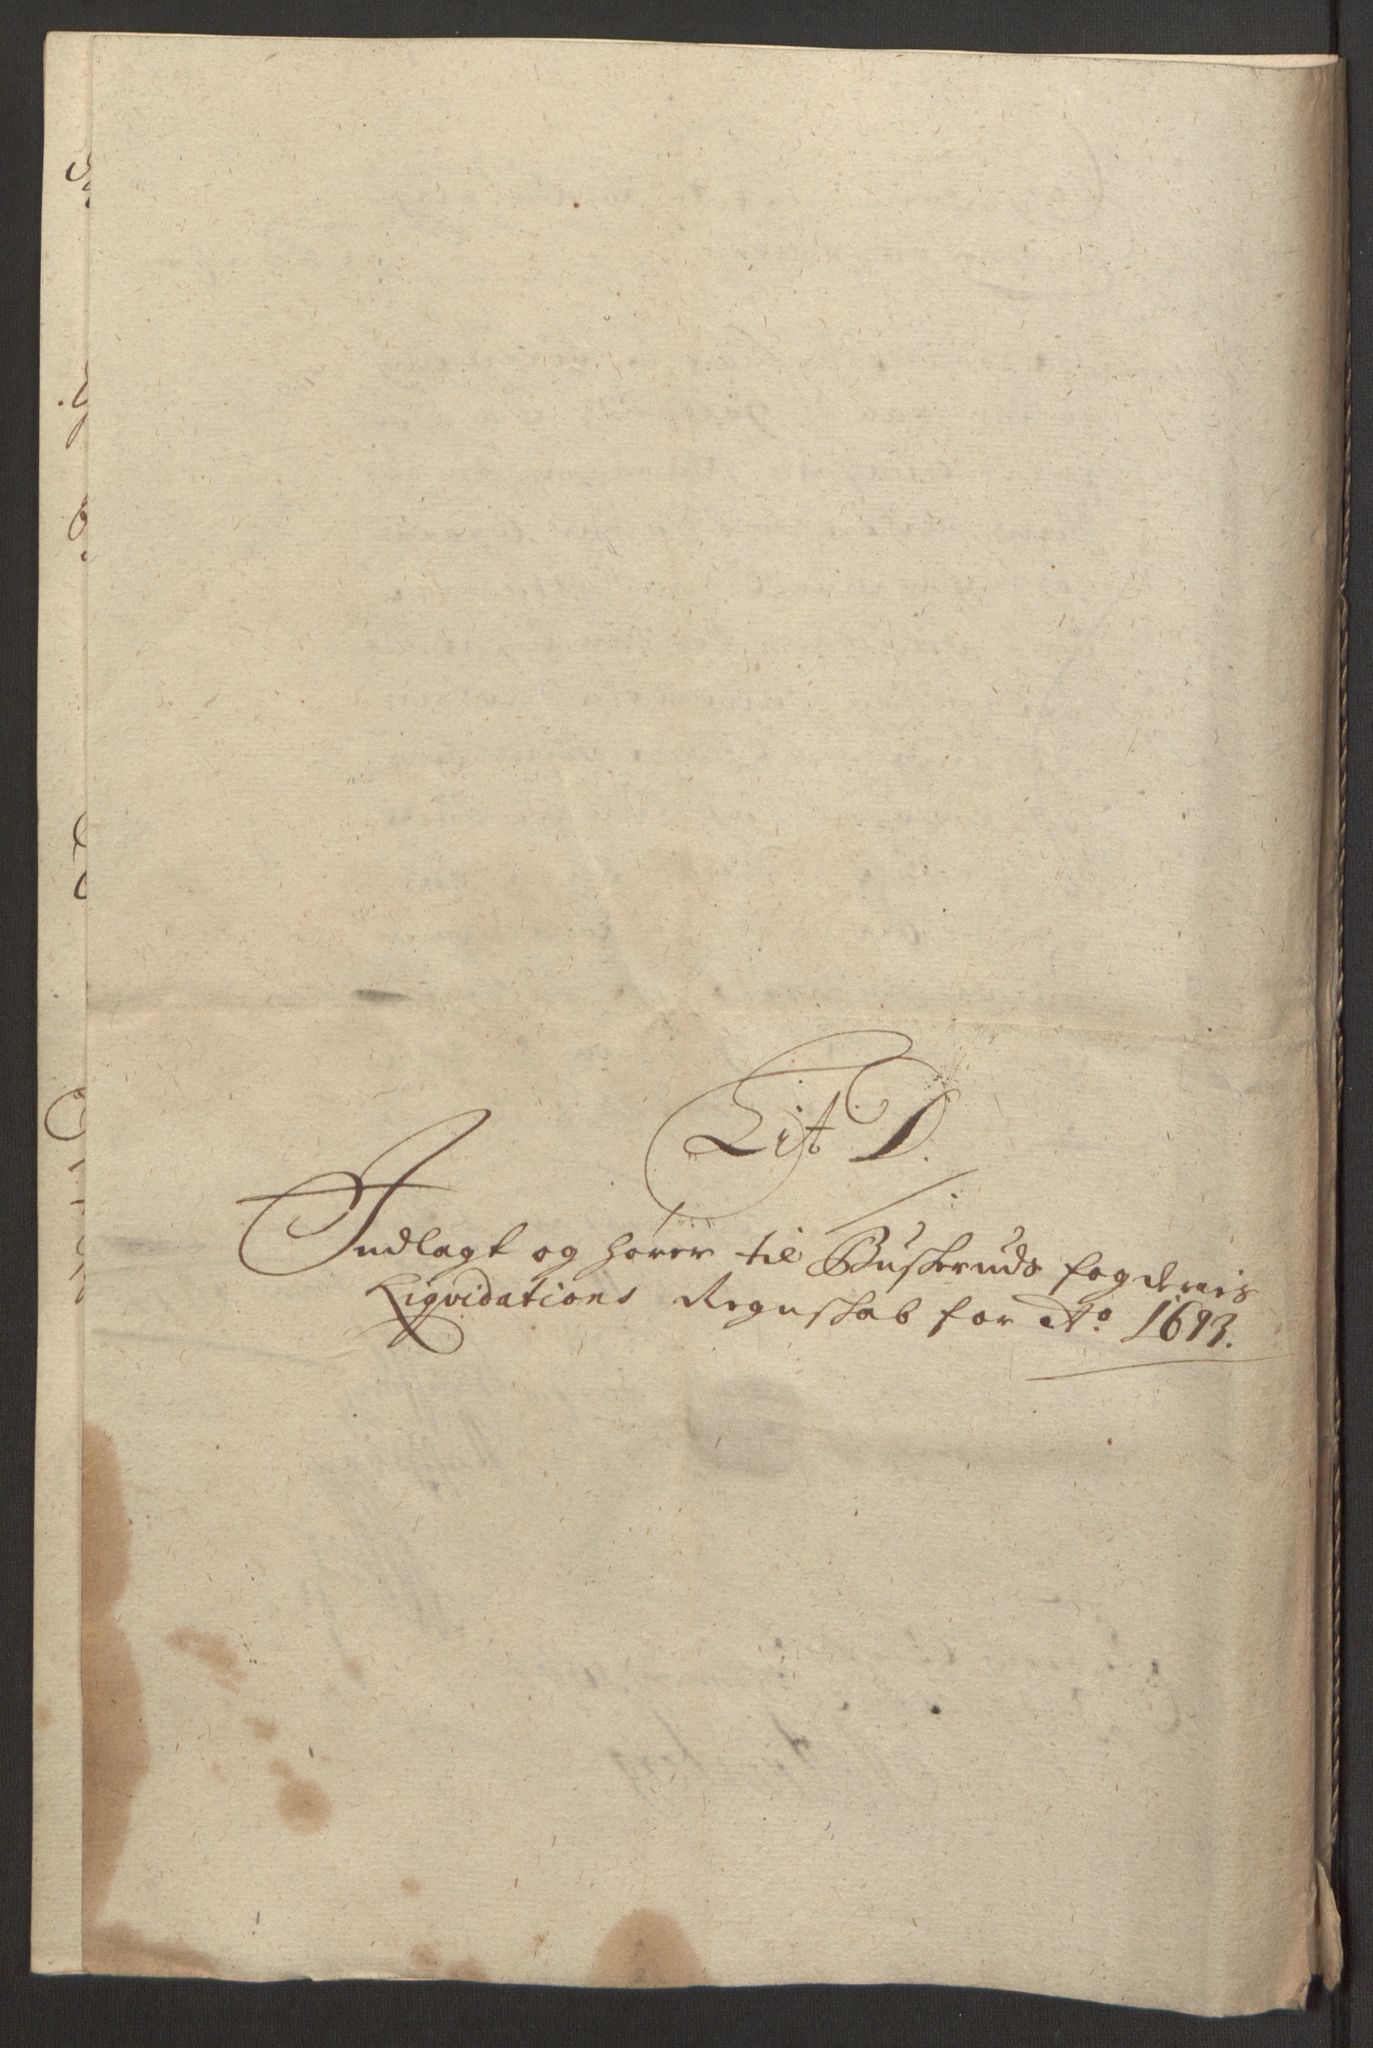 Lit D.
Indlagt og hörer til Buskeruds fogderies
Liqvidations Regnskab for Ao 1693.